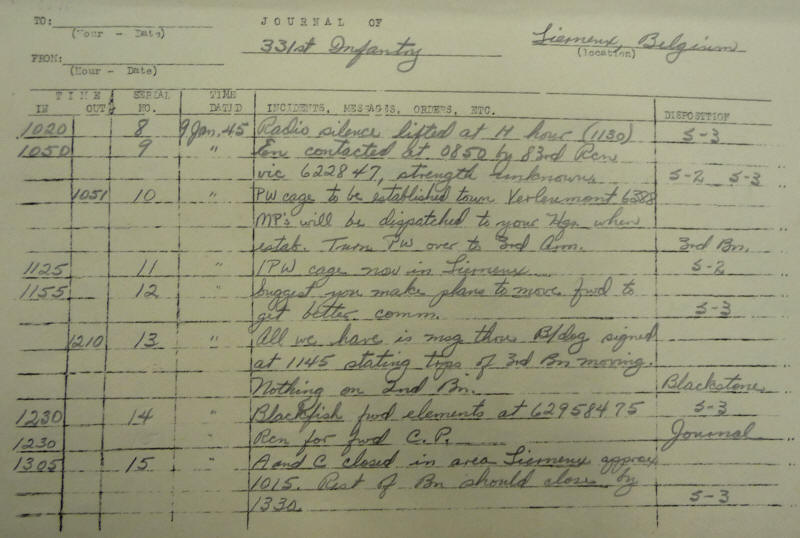 TO: JOURNAL OF
(Hour - Date) 331st Infantry Liemeux, Belgium
FROM: (location)
(Hour - Date)
TIME SERIAL TIME
IN OUT NO. DATED INCIDENTS, MESSAGES, ORDERS, ETC. DISPOSITION
1020 8 9 Jan. 45 Radio silence lifted at H hour (1130) S-3
1050 9 " En contacted at 0850 by 83rd Rcn
vic 622847, strength unknown S-2 S-3
1051 10 " PW cage to be established town Verleumont 6388
MP's will be dispatched to your Hqs when
estab. Turn PW over to 3rd Arm. 3rd Bn.
1125 11 " IPW cage now in Liemeux S-2
1155 12 " Suggest you make plans to move fwd to
get better comm. S-3
1210 13 " All we have is msg thru signed
at 1145 stating tops of 3rd Bn moving.
Nothing on 2nd Bn. Blackstone
1230 14 " Blackfish fwd elements at 62958475 S-3
1230 " Rcn for fwd C.P. Journal
1305 15 " A and C closed in area Liemeux approx
1015. Rest of Bn should close by
1330 S-3